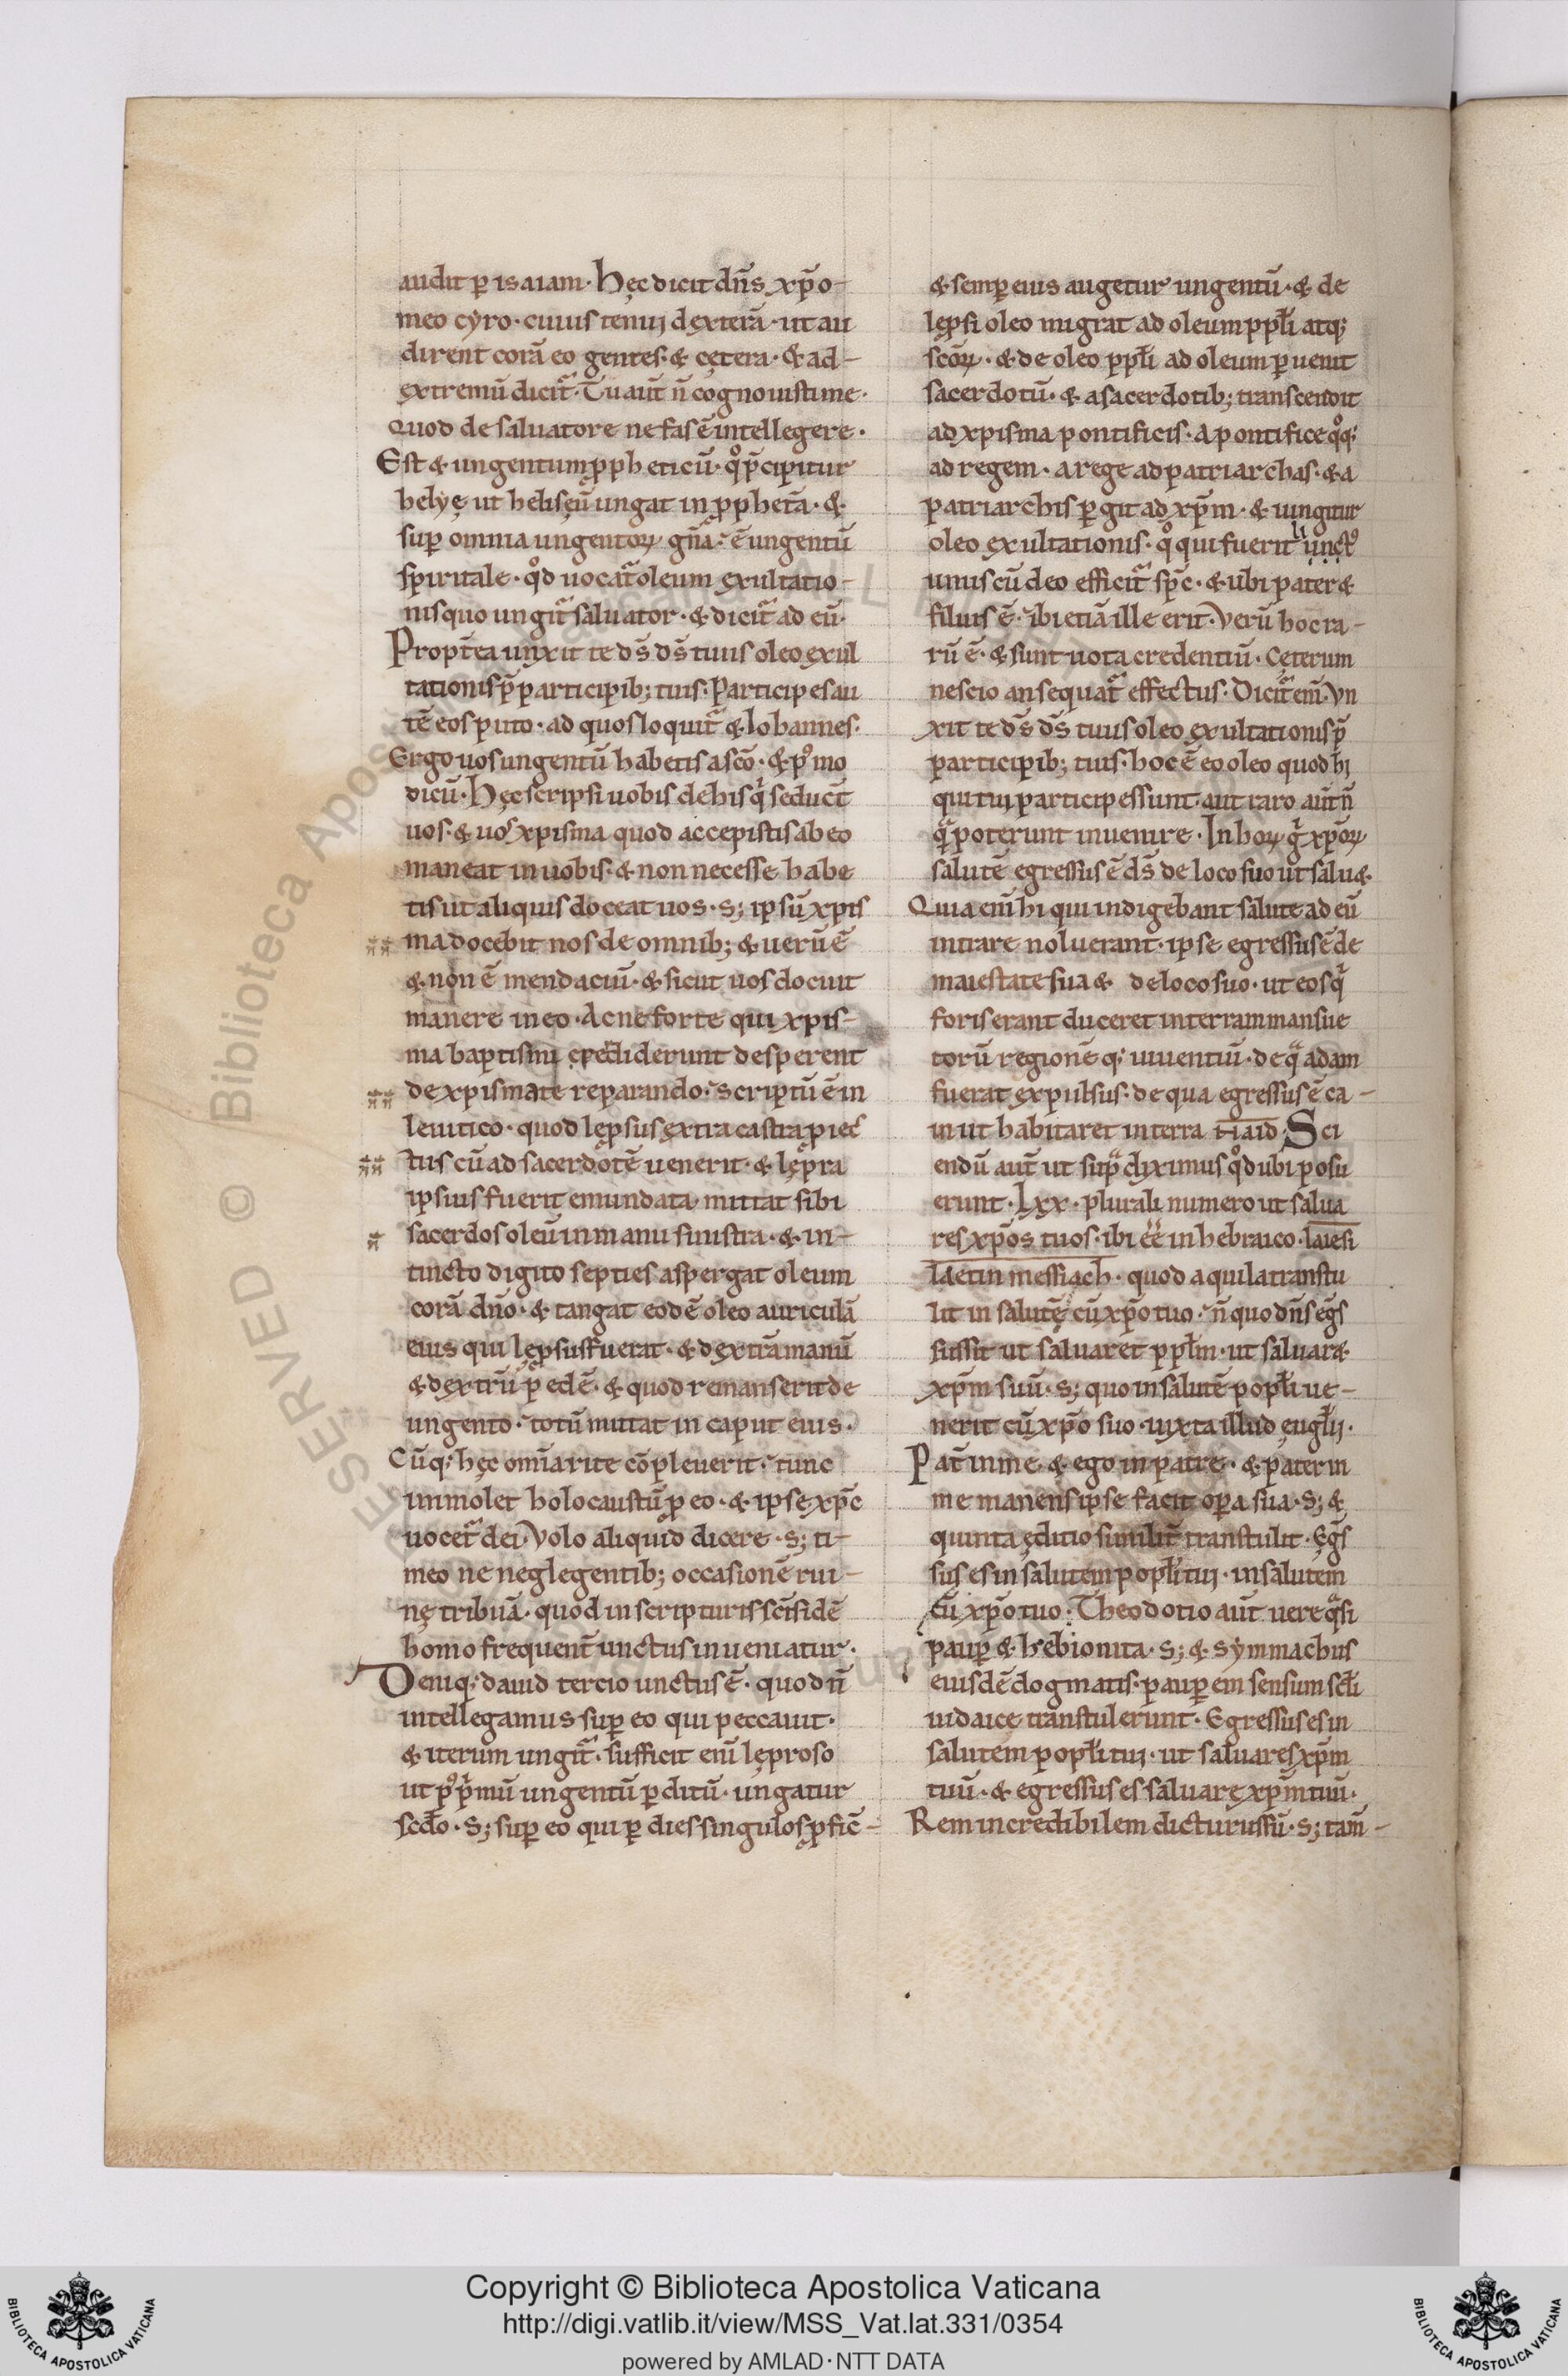 audit ꝑ isaiam· Hęc dicit dñs xp̃o
meo cyro· cuius tenui dexterã· ut au
dirent corã eo gentes· & cętera· & ad-
extremũ dicit᷑· Tu aut̃ ñ cognouisti me·
Quod de saluatore nefas ẽ intellegere·
Est & ungentum ꝓpheticũ· qͦ p̃cipitur
helyę ut heliseũ ungat in ꝓphetã· &
suꝑ omnia ungentoꝝ gñã· ẽ ungentũ
spiritale· qͦd uocat᷑ oleum exultatio-
nis quo ungit᷑ saluator· & dicit᷑ ad eũ·
Propt̃ea unxit te ds̃ ds̃ tuus oleo exul
tationis p̃ participib; tuis· Participes au
tẽ eos puto· ad quos loquit᷑ & Iohannes·
Ergo uos ungentũ habetis a scõ· & pꝰ mo
dicũ· Hęc scripsi uobis de his qͥ seduct̃
uos· & uos xpisma quod accepistis ab eo
maneat in uobis· & non necesse habe
tis ut aliquis doceat uos· s; ipsũ xpis
ma docebit nos de omnib; & uerũ ẽ
& non ẽ mendaciũ· & sicut uos docuit
manere in eo· Ac ne forte qui xpis-
ma baptismi perdiderunt desperent
de xpismate reparando· scriptũ ẽ in
leuitico· quod lepsus extra castra piec̃
tus cũ ad sacerdotẽ uenerit· & lępra
ipsius fuerit emundata mittat sibi
sacerdos oleũ in manu sinistra· & in-
tincto digito septies aspergat oleum
corã dño· & tangat eodẽ oleo auriculã
eius qui lepsus fuerat· & dextrã manũ
& dextrũ pedẽ· & quod remanserit de
ungento· totũ mittat in caput eius·
Cũq; hęc omĩa rite cõpleuerit· tunc
immolet holocaustũ ꝓ eo· & ipse xp̃c
uocet᷑ dei· Volo aliquid dicere· s; ti-
meo ne neglegentib; occasionẽ rui-
nę tribuã· quod in scripturis sc̃is idẽ
homo frequent̃ unctus inueniatur·
Deniq; dauid tercio unctus ẽ· quod ñ
intellegamus suꝑ eo qui peccauit·
& iterum ungit᷑· sufficit eni̅ leproso
ut pꝰ pͥmũ ungentũ ꝑditũ· ungatur
scd̃o· S; suꝑ eo qui ꝑ dies singulos ꝓfic̃-
& semꝑ eius augetur ungentũ· & de
lepsi oleo migrat ad oleum ppl̃i atq;
scõꝝ· & de oleo ppl̃i ad oleum ꝑuenit
sacerdotũ· & a sacerdotib; transcendit
ad xpisma pontificis· A pontifice qͦq;
ad regem· a rege ad patriarchas· & a
patriarchis ꝑgit ad xp̃m· & iungitur
oleo exultationis· qͦ qui fuerit li unctꝰ
unus cũ deo efficit᷑ sp̃c· & ubi pater &
filius ẽ· ibi etiã ille erit· Verũ hoc ra-
rũ ẽ· & sunt uota credentiũ· Cęterum
nescio an sequat᷑ effectus· Dicit᷑ em̃· Vn
xit te ds̃ ds̃ tuus oleo exultationis p̃
participib; tuis· hoc ẽ eo oleo quod hi
qui tui participes sunt· aut raro aut̃ ñ
qͣ̃ poterunt inuenire· In hoꝝ gͥ xp̃oꝝ
salutẽ egressus ẽ ds̃ de loco suo ut salu&·
Quia eni̅ hi qui indigebant salute ad eũ
intrare noluerant· ipse egressus ẽ de
maiestate sua & de loco suo· ut eos qͥ
foris erant duceret in terram mansue
torũ regionẽ q; uiuentiũ· de qͣ adam
fuerat expulsus· de qua egressus ẽ ca-
in ut habitaret in terra naid· Sci
endũ aut̃ ut supͣ diximus qͦd ubi posu
erunt· Lxx· plurali numero ut salua
res xp̃os tuos· ibi ẽẽ in hebraico· laiesi
laetin messiach· quod aquila transtu
lit in salutẽ cũ xp̃o tuo· ñ quo dñs eg̃s
sussit ut saluaret ppl̃m· ut saluar&
xp̃m suũ· S; quo in salutẽ popl̃i ue-
nerit cũ xp̃o suo· iuxta illud eugl̃ii·
Pat̃ in me & ego in patre· & pater in
me manens ipse facit oꝑa sua· S; &
quinta editio similit̃ transtulit· Eg̃s
sus es in salutem popl̃i tui· in salutem
cũ xp̃o tuo· Theodotio aut̃ uere qͣsi
pauꝑ & hebionita· S; & symmachus
eiusdẽ dogmatis· pauꝑem sensum scl̃i
iudaice transtulerunt· Egressus es in
salutem popl̃i tui· ut saluares xp̃m
tuũ· & egressus es saluare xp̃m tuũ·
Rem incredibilem dicturus sũ· S; tam̃-
Copyright © Biblioteca Apostolica Vaticana
http://digi.vatlib.it/view/MSS_Vat.lat.331/0354
powered by AMLAD·NTT DATA
BIBLIOTECA APOSTOLICA VATICANA
BIBLIOTECA APOSTOLICA VATICANA